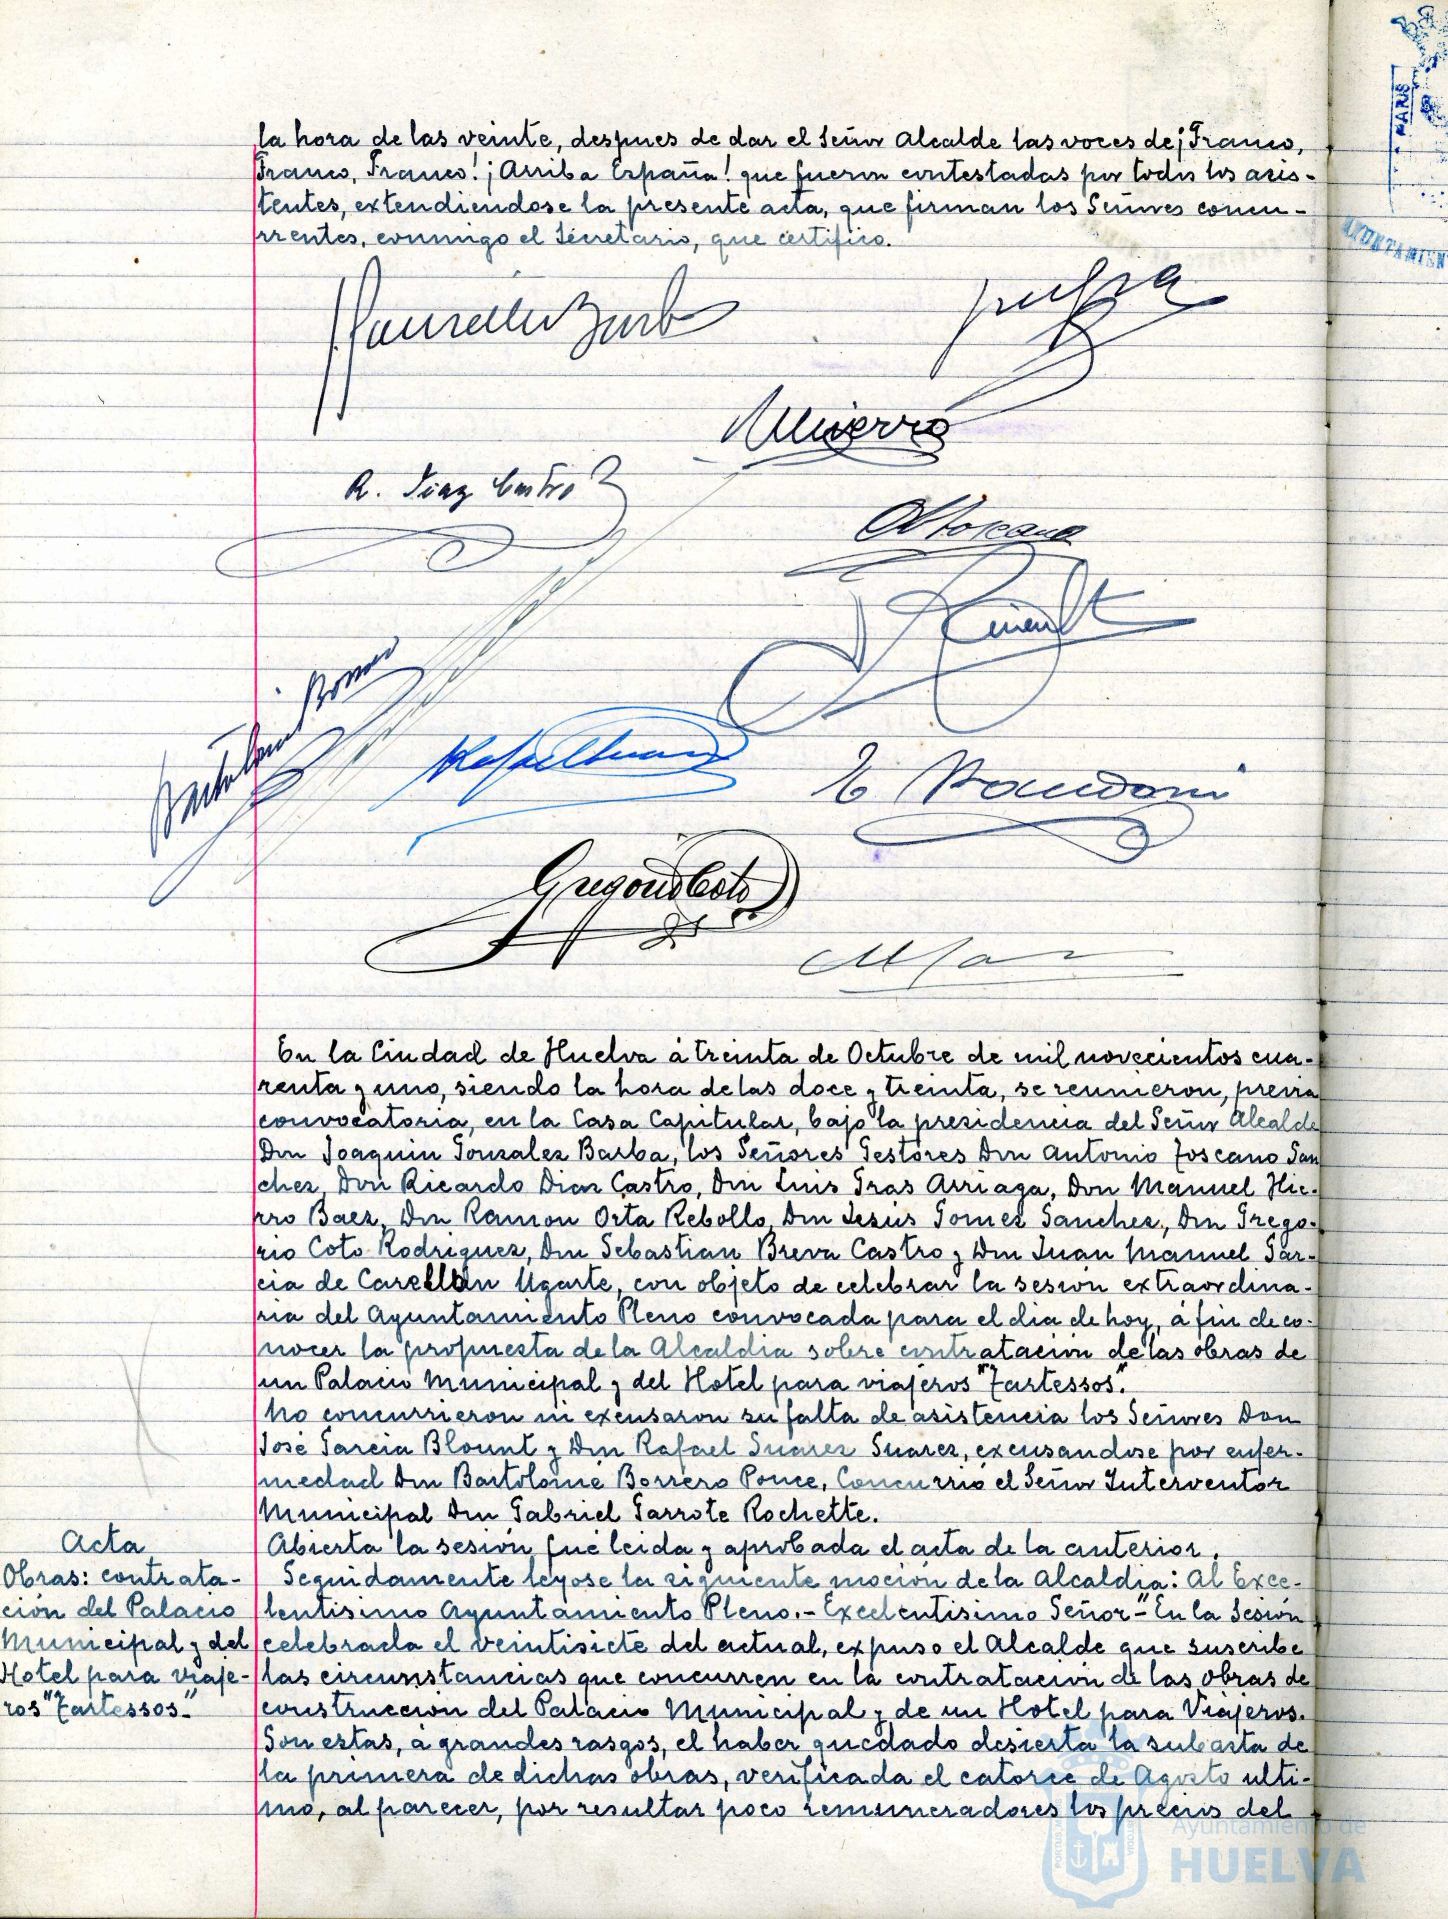 la hora de las veinte, despues de dar el Señor Alcalde las voces de ¡Franco,
Franco, Franco! ¡Arriba España! que fueron contestadas por todos los asis-
tentes, extendiendose la presente acta, que firman los Señores concu-
rrentes, conmigo el Secretario, que certifico.
R. Diaz Castro
Bartolomé Borrero
Gregorio Coto
En la Ciudad de Huelva á treinta de Octubre de mil novecientos cua-
renta y uno, siendo la hora de las doce y treinta, se reunieron, previa
convocatoria, en la Casa Capitular, bajo la presidencia del Señor Alcalde
Don Joaquin Gonzalez Barba, los Señores Gestores Don Antonio Toscano San
chez, Don Ricardo Diaz Castro, Don Luis Gras Arriaga, Don Manuel Hie-
rro Baez, Don Ramon Orta Rebollo, Don Jesús Gomez Sanchez, Don Grego-
rio Coto Rodriguez, Don Sebastian Breva Castro y Don Juan Manuel Gar-
cia de Carellán Ugarte, con objeto de celebrar la sesión extraordina-
ria del Ayuntamiento Pleno convocada para el dia de hoy, á fin de co-
nocer la propuesta de la Alcaldia sobre contratación de las obras de
un Palacio Municipal y del Hotel para viajeros "Tartessos".
No concurrieron ni excusaron su falta de asistencia los Señores Don
José Garcia Blount y Don Rafael Suarez Suarez, excusandose por enfer-
medad Don Bartolomé Borrero Ponce, Concurrió el Señor Interventor
Municipal Don Gabriel Garrote Rochette.
Acta
Abierta la sesión fué leida y aprobada el acta de la anterior.
Obras: contrata-
ción del Palacio
Municipal y del
Hotel para viaje-
ros "Tartessos"-
Seguidamente leyose la siguiente moción de la Alcaldia: Al Exce-
lentisimo Ayuntamiento Pleno.- Excelentisimo Señor-"En la Sesión
celebrada el veintisiete del actual, expuso el Alcalde que suscribe
las circunstancias que concurren en la contratación de las obras de
construcción del Palacio Municipal y de un Hotel para Viajeros.
Son estas, á grandes rasgos, el haber quedado desierta la subasta de
la primera de dichas obras, verificada el catorce de Agosto ulti-
mo, al parecer, por resultar poco remuneradores los precios del
Ayuntamiento de
HUELVA